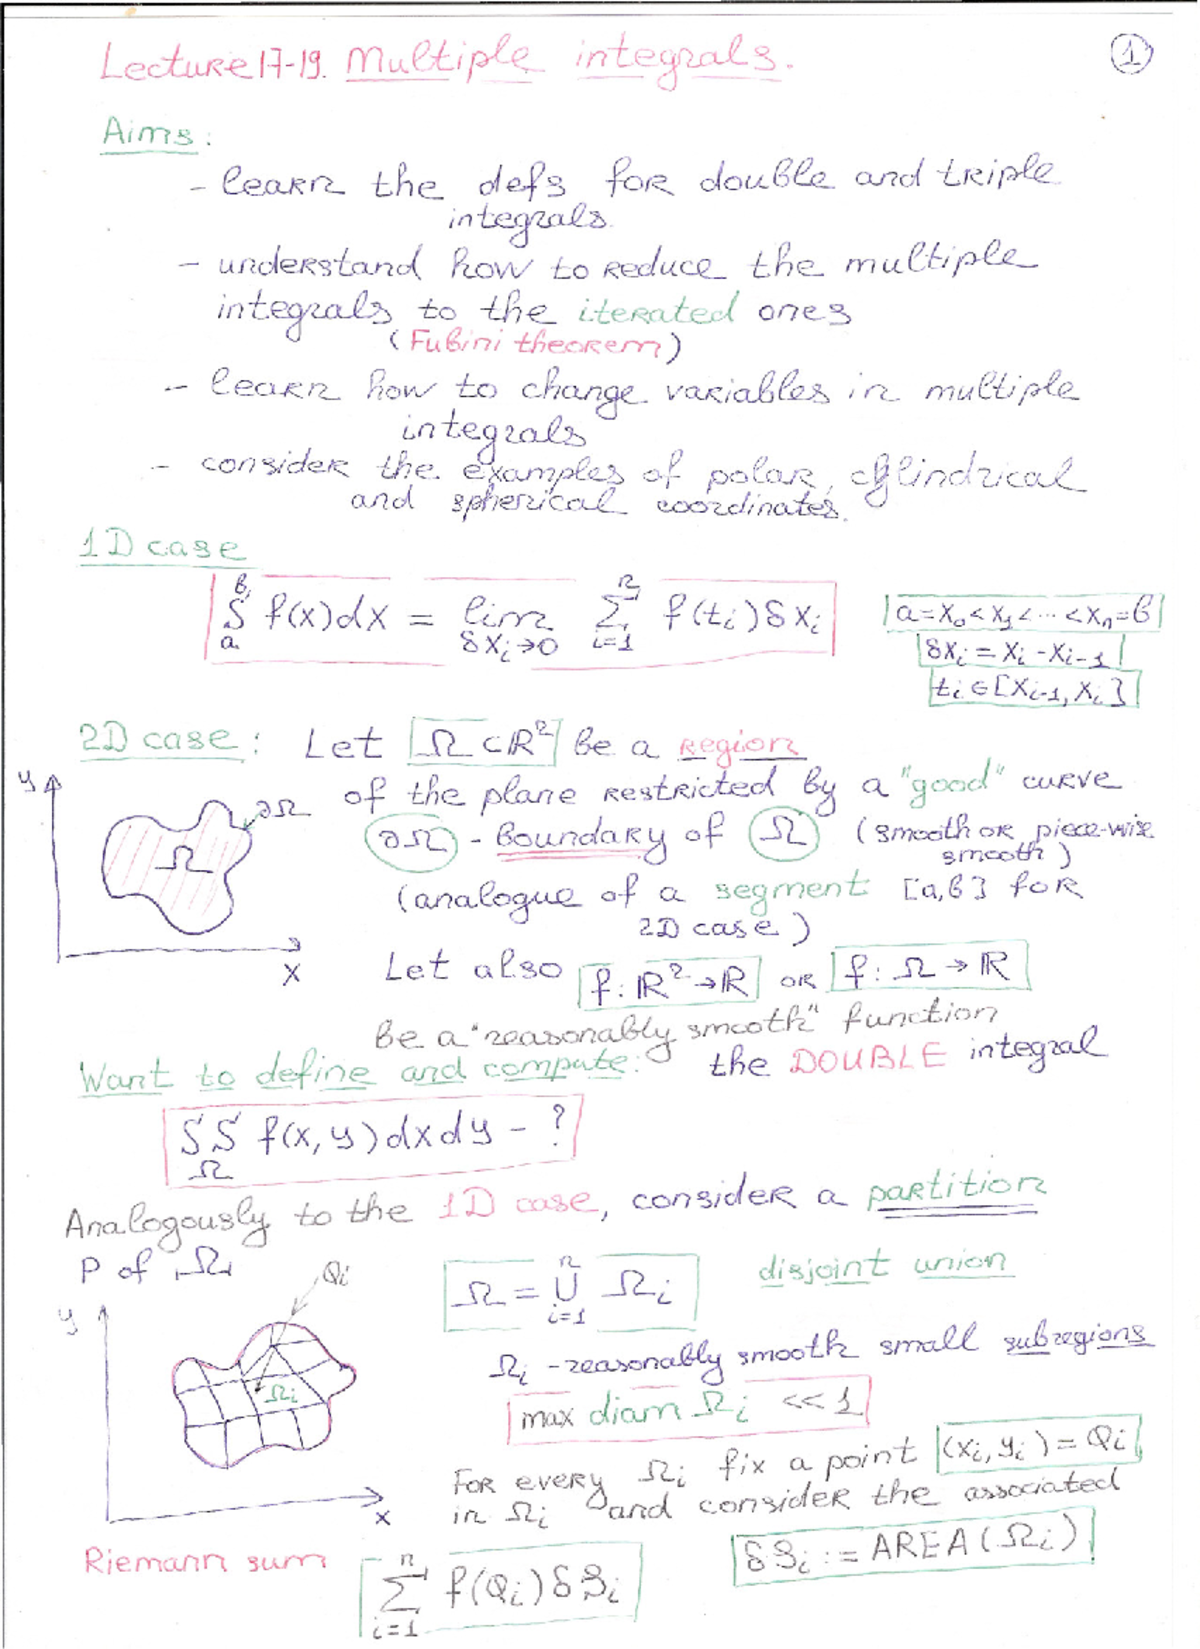 Lecture 17-19. Multiple integrals.
1
Aims:
- learn the defs for double and triple
integrals.
- understand how to reduce the multiple
integrals to the iterated ones
(Fubini theorem)
- learn how to change variables in multiple
integrals
- consider the examples of polar, cylindrical
and spherical coordinates.
1D case
∫_a^b f(x)dx = lim_{δx_i→0} ∑_{i=1}^n f(t_i)δx_i
a = x_0 < x_1 < ... < x_n = b
δx_i = x_i - x_{i-1}
t_i ∈ [x_{i-1}, x_i]
2D case: Let Ω ⊂ ℝ² be a region
of the plane restricted by a "good" curve
∂Ω - boundary of Ω (smooth or piece-wise
smooth)
(analogue of a segment [a,b] for
2D case)
y
∂Ω
Ω
x
Let also f: ℝ² → ℝ or f: Ω → ℝ
be a "reasonably smooth" function
Want to define and compute: the DOUBLE integral
∬_Ω f(x,y)dxdy - ?
Analogously to the 1D case, consider a partition
P of Ω
Ω = ⋃_{i=1}^n Ω_i disjoint union
y
Q_i
Ω_i
x
Ω_i - reasonably smooth small subregions
max diam Ω_i << 1
For every Ω_i fix a point (x_i, y_i) = Q_i
in Ω_i and consider the associated
Riemann sum ∑_{i=1}^n f(Q_i)δS_i
δS_i := AREA(Ω_i)